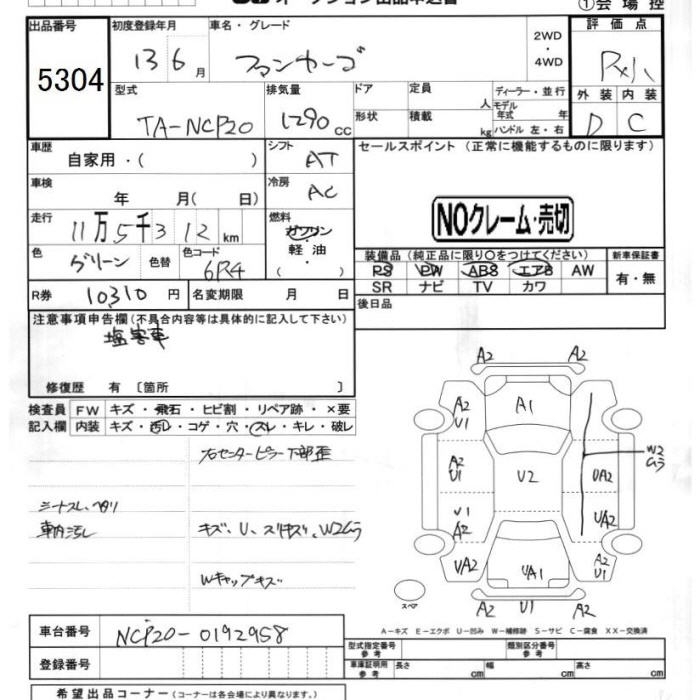 オークション出品申込書
①会場控
出品番号
5304
初度登録年月
13 6 月
車名・グレード
ファンカーゴ
2WD
・
4WD
評価点
外装 内装
D C
型式
TA-NCP20
排気量
1290 cc
ドア
形状
定員 人
積載 kg
ディーラー・並行
モデル年式 年
ハンドル 左・右
車歴
自家用・( )
シフト
AT
車検
年 月( 日)
冷房
AC
走行
11万5千312km
燃料
ガソリン
・
軽油
・
( )
色
グリーン
色替
色コード
6R4
R券
10310円
名変期限 月 日
セールスポイント (正常に機能するものに限ります)
NOクレーム・売切
装備品 (純正品に限り〇をつけてください)
PS PW ABS エアB AW
SR ナビ TV カワ
新車保証書
有・無
後日品
注意事項申告欄 (不具合内容等は具体的に記入して下さい)
塩害車
修復歴 有 〔箇所 〕
検査員記入欄
FW キズ・飛石・ヒビ割・リペア跡・×要
内装 キズ・汚レ・コゲ・穴・スレ・キレ・破レ
右センターピラー下部歪
シートスレ、ヘタリ
車内汚レ
キズ、U、スリキズ、W2ムラ
Wキャップキズ
A2 A2
A2
U1
A1
W2
ムラ
A2
U1
U2
UA2
U1
A2
UA2
UA2
UA1
A2
U1
A2 U1 A2
スペア
A-キズ E-エクボ U-凹み W-補修跡 S-サビ C-腐食 XX-交換済
車台番号
NCP20-0192958
登録番号
型式指定番号 参考
類別区分番号 参考
車庫証明用 参考
長さ cm
幅 cm
高さ cm
希望出品コーナー (コーナーは各会場により異なります。)